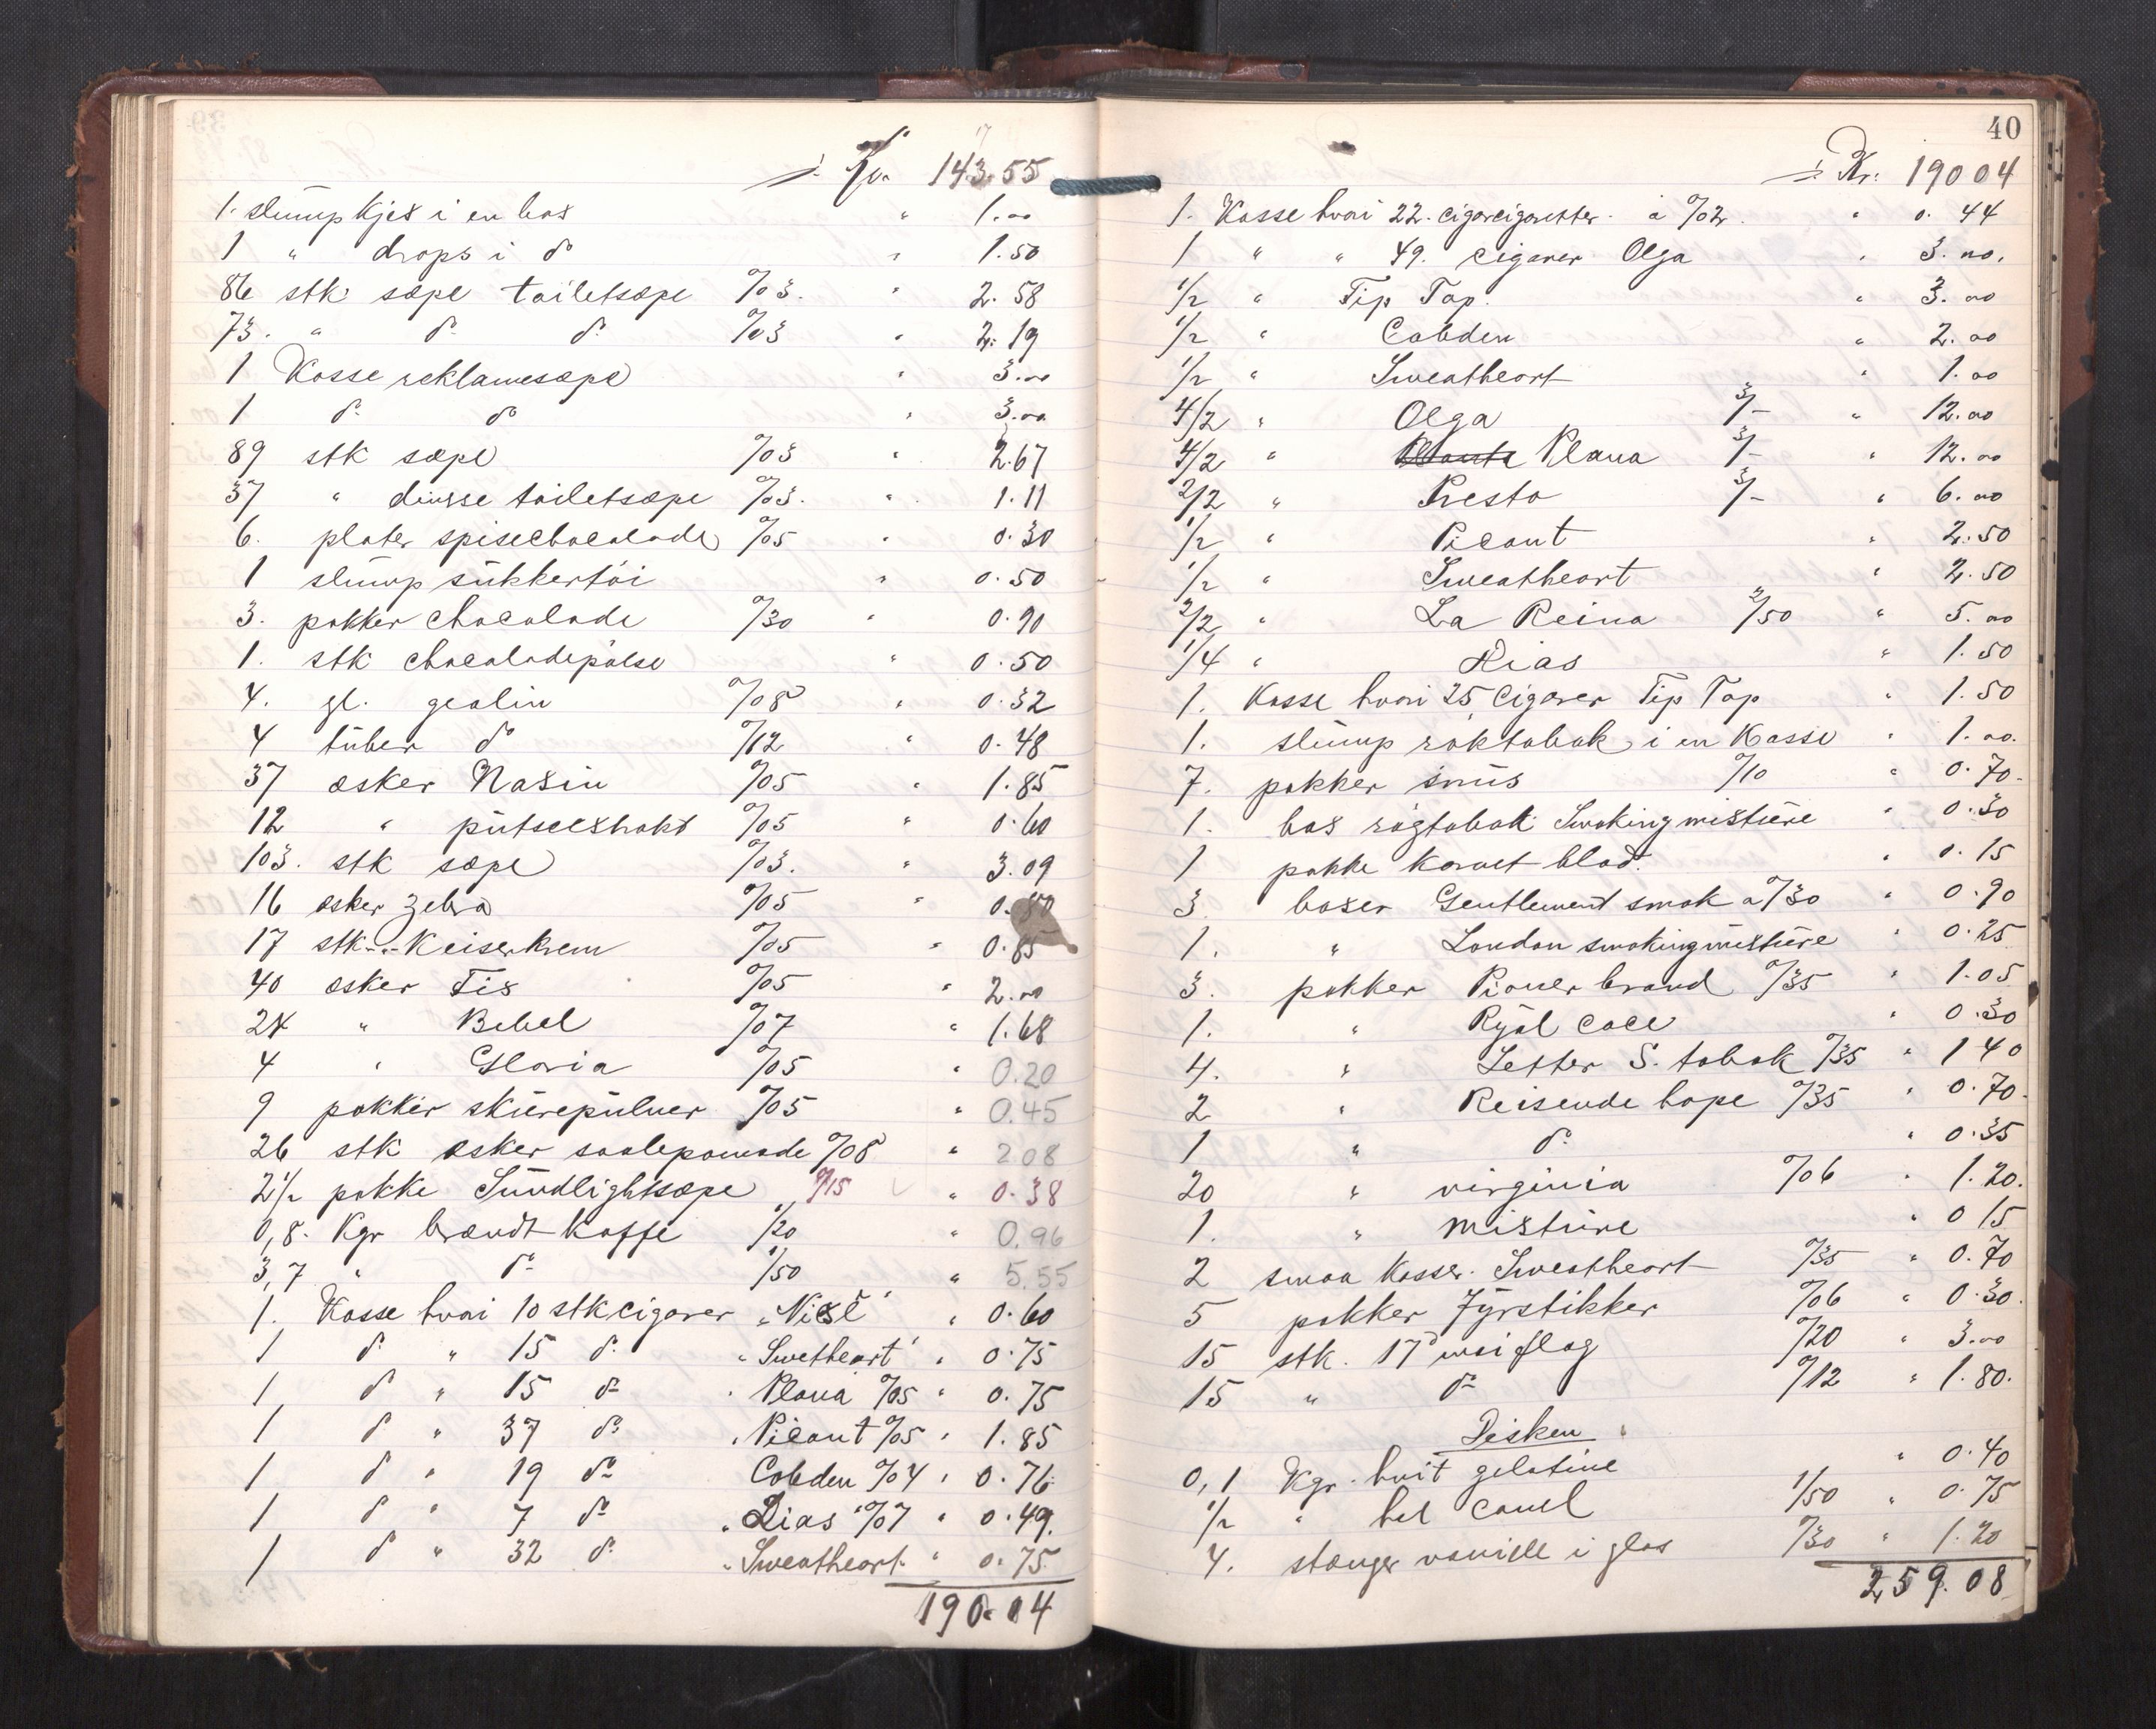 ÷ Kr. 143.55
1. slump Kjex i en box " 1.00
1 " drops i do " 1.50
86 stk sæpe toiletsæpe %03. " 2.58
73. " do do %03 " 2.19
1 Kasse reklamesæpe " 3.00
1 do do " 3.00
89 stk sæpe %03 " 2.67
37 " diverse toiletsæpe %03. " 1.11
6. plater spisechocolade %05 " 0.30
1 slump sukkertöi " 0.50
3. pakker chocolade %30 " 0.90
1. stk chocoladepölse " 0.50
4. gl. geolin %08 " 0.32
4 tuber do %12 " 0.48
37 æsker Naxin %05 " 1.85
12 " putseextrakt %05 " 0.60
103. stk sæpe %03. " 3.09
16 æsker Zebra %05 " 0.80
17 stk Keiserkrem %05 " 0.85
40 æsker Fix %05 " 2.00
24 " Bebel %07 " 1.68
4 " Gloria %05 " 0.20
9 pakker skurepulver %05 " 0.45
26 stk æsker saalepomade %08 " 2.08
2 1/2 pakke Sundlightsæpe %15 " 0.38
0,8. Kgr brændt Kaffe 1/20 " 0.96
3,7 " do 1/50 " 5.55
1. Kasse hvori 10 stk cigarer " 0.60
1 do " 15 do "Swetheart" " 0.75
1 do " 15 do " Plana %05 " 0.75
1 do " 37 do " Picant %05 " 1.85
1 do " 19 do Cobden %04 " 0.76
1 do " 7 do " Dias %07 " 0.49.
1 do " 32 do " Sweatheart " 0.75
190.04
40
÷ Kr. 190 04
1. Kasse hvori 22. cigarcigaretter. a %02. " 0.44
1 " " 49. cigarer Olga " 3.00.
1/2 " Tip Top. " 3.00
1/2 " Cobden " 2.00
1/2 " Sweatheart " 1.00
4/2 " Olga 3/- " 12.00
4/2 " Plana 3/- " 12.00
2/2 " Presto 3/- " 6.00
1/2 " Picant " 2.50
1/2 " Sweatheart " 2.50
2/2 " La Reina 2/50 " 5.00
1/4 " Dias " 1.50
1. Kasse hvori 25 Cigarer Tip Top " 1.50
1. slump röktobak i en Kasse " 1.00.
7. pakker snus %10 " 0.70.
1. box rögtobak Smokingmixture " 0.30
1 pakke karvet blad. " 0.15
3 boxer Gentlement smok a %30 " 0.90
1. " London smokingmixture " 0.25
3. pakker Pioner brand %35 " 1.05
1. " Ryal cace " 0.30
4. " Letter S. tobak %35 " 1 40
2 " Reisende hope %35 " 0.70.
1 " do " 0.35
20 " virginia %06 " 1.20.
1. " mixture " 0 15
2 smaa Kasser. Sweatheart %35 " 0.70
5 pakker Fyrstikker %06 " 0.30.
15 stk. 17 mai flag %20 " 3.00
15 " do %12 " 1.80.
Disken
0,1 Kgr. hvit gelatine " 0.40
1/2 " hel canel 1/50 " 0.75
4. stænger vanille i glas %30 " 1.20
259.08